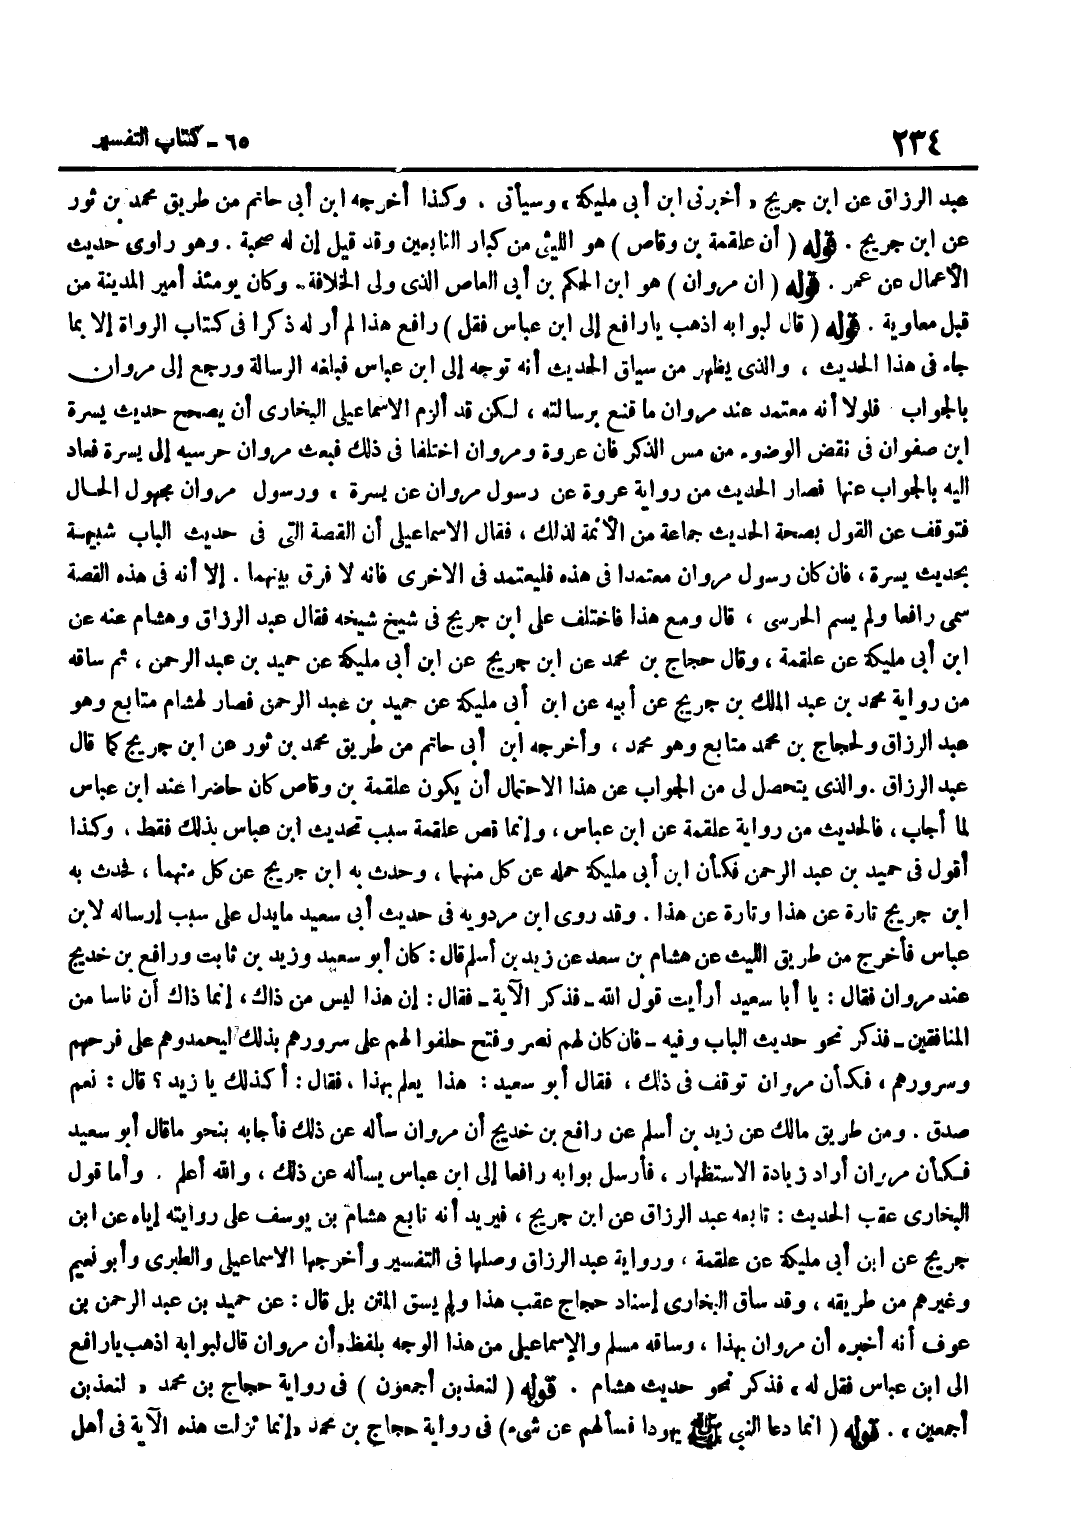 ٢٣٤
٦٥ - كتاب التفسير
عبد الرزاق عن ابن جريج « أخبرنى ابن أبى مليكة » وسيأتى . وكذا أخرجه ابن أبى حاتم من طريق محمد بن ثور
عن ابن جريج . قوله ( أن علقمة بن وقاص ) هو الليثى من كبار التابعين وقد قيل إن له صحبة . وهو راوى حديث
الأعمال عن عمر . قوله ( ان مروان ) هو ابن الحكم بن أبى العاص الذى ولى الخلافة . وكان يومئذ أمير المدينة من
قبل معاوية . قوله ( قال لبوابه اذهب يارافع إلى ابن عباس فقل ) رافع هذا لم أر له ذكرا فى كتاب الرواة إلا بما
جاء فى هذا الحديث ، والذى يظهر من سياق الحديث أنه توجه إلى ابن عباس فبلغه الرسالة ورجع إلى مروان
بالجواب فلولا أنه معتمد عند مروان ما قنع برسالته ، لكن قد ألزم الاسماعيلى البخارى أن يصحح حديث يسرة
ابن صفوان فى نقض الوضوء من مس الذكر فان عروة ومروان اختلفا فى ذلك فبعث مروان حرسيه إلى يسرة فعاد
اليه بالجواب عنها فصار الحديث من رواية عروة عن رسول مروان عن يسرة ، ورسول مروان مجهول الحال
فتوقف عن القول بصحة الحديث جماعة من الأئمة لذلك ، فقال الاسماعيلى أن القصة التى فى حديث الباب شبيهة
بحديث يسرة ، فان كان رسول مروان معتمدا فى هذه فليعتمد فى الاخرى فانه لا فرق بينهما . إلا أنه فى هذه القصة
سمى رافعا ولم يسم الحرسى ، قال ومع هذا فاختلف على ابن جريج فى شيخ شيخه فقال عبد الرزاق وهشام عنه عن
ابن أبى مليكة عن علقمة ، وقال حجاج بن محمد عن ابن جريج عن ابن أبى مليكة عن حميد بن عبد الرحمن ، ثم ساقه
من رواية محمد بن عبد الملك بن جريج عن أبيه عن ابن أبى مليكة عن حميد بن عبد الرحمن فصار لهشام متابع وهو
عبد الرزاق ولحجاج بن محمد متابع وهو محمد ، وأخرجه ابن أبى حاتم من طريق محمد بن ثور عن ابن جريج كما قال
عبد الرزاق . والذى يتحصل لى من الجواب عن هذا الاحتمال أن يكون علقمة بن وقاص كان حاضرا عند ابن عباس
لما أجاب ، فالحديث من رواية علقمة عن ابن عباس ، وإنما قص علقمة سبب تحديث ابن عباس بذلك فقط ، وكذا
أقول فى حميد بن عبد الرحمن فكأن ابن أبى مليكة حمله عن كل منهما ، وحدث به ابن جريج عن كل منهما ، فحدث به
ابن جريج تارة عن هذا وتارة عن هذا . وقد روى ابن مردويه فى حديث أبى سعيد مايدل على سبب إرساله لابن
عباس فأخرج من طريق الليث عن هشام بن سعد عن زيد بن أسلم قال : كان أبو سعيد وزيد بن ثابت ورافع بن خديج
عند مروان فقال : يا أبا سعيد أرأيت قول الله - فذكر الآية - فقال : إن هذا ليس من ذاك ، إنما ذاك أن ناسا من
المنافقين - فذكر نحو حديث الباب وفيه - فان كان لهم نصر وفتح حلفوا لهم على سرورهم بذلك ليحمدوهم على فرحهم
وسرورهم ، فكأن مروان توقف فى ذلك ، فقال أبو سعيد : هذا يعلم بهذا ، فقال : أكذلك يا زيد ؟ قال : نعم
صدق . ومن طريق مالك عن زيد بن أسلم عن رافع بن خديج أن مروان سأله عن ذلك فأجابه بنحو ماقال أبو سعيد
فكأن مروان أراد زيادة الاستظهار ، فأرسل بوابه رافعا إلى ابن عباس يسأله عن ذلك ، والله أعلم . وأما قول
البخارى عقب الحديث : تابعه عبد الرزاق عن ابن جريج ، فيريد أنه تابع هشام بن يوسف على روايته إياه عن ابن
جريج عن ابن أبى مليكة عن علقمة ، ورواية عبد الرزاق وصلها فى التفسير وأخرجها الاسماعيلى والطبرى وأبو نعيم
وغيرهم من طريقه ، وقد ساق البخارى إسناد حجاج عقب هذا ولم يسق المتن بل قال : عن حميد بن عبد الرحمن بن
عوف أنه أخبره أن مروان بهذا ، وساقه مسلم والإسماعيلى من هذا الوجه بلفظ «أن مروان قال لبوابه اذهب يارافع
الى ابن عباس فقل له » فذكر نحو حديث هشام . قوله ( لنعذبن أجمعون ) فى رواية حجاج بن محمد « لنعذبن
أجمعين » . قوله ( انما دعا النبى ﷺ يهودا فسألهم عن شىء ) فى رواية حجاج بن محمد «إنما نزلت هذه الآية فى أهل